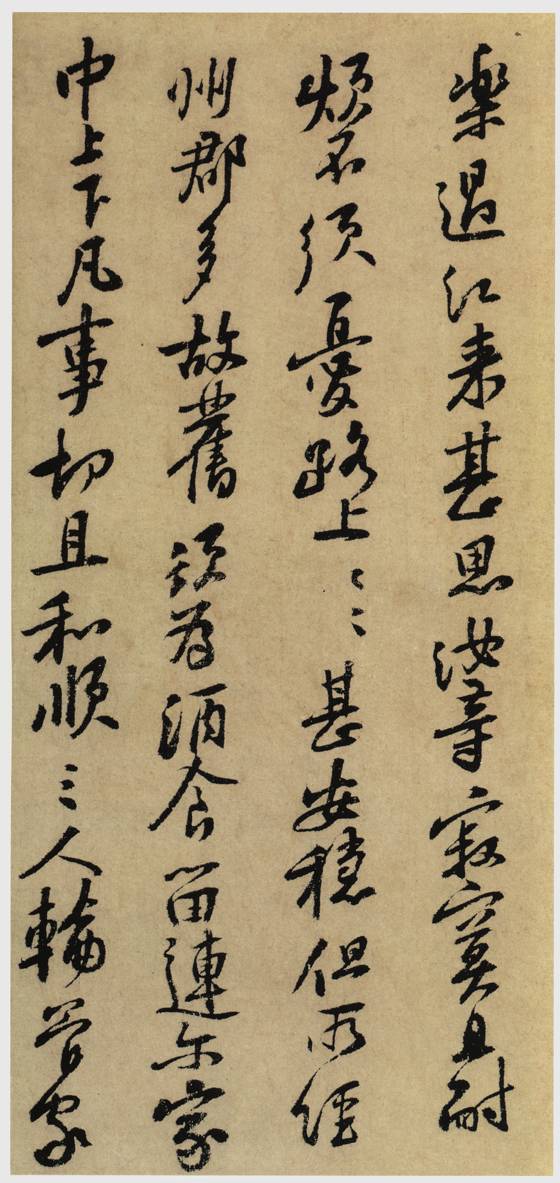 樂過江來甚思汝等寂寞且耐
煩不須憂路上〻甚安穩但所經
州郡多故舊須為酒食留連尓家
中上下凡事切且和順三人輪管家